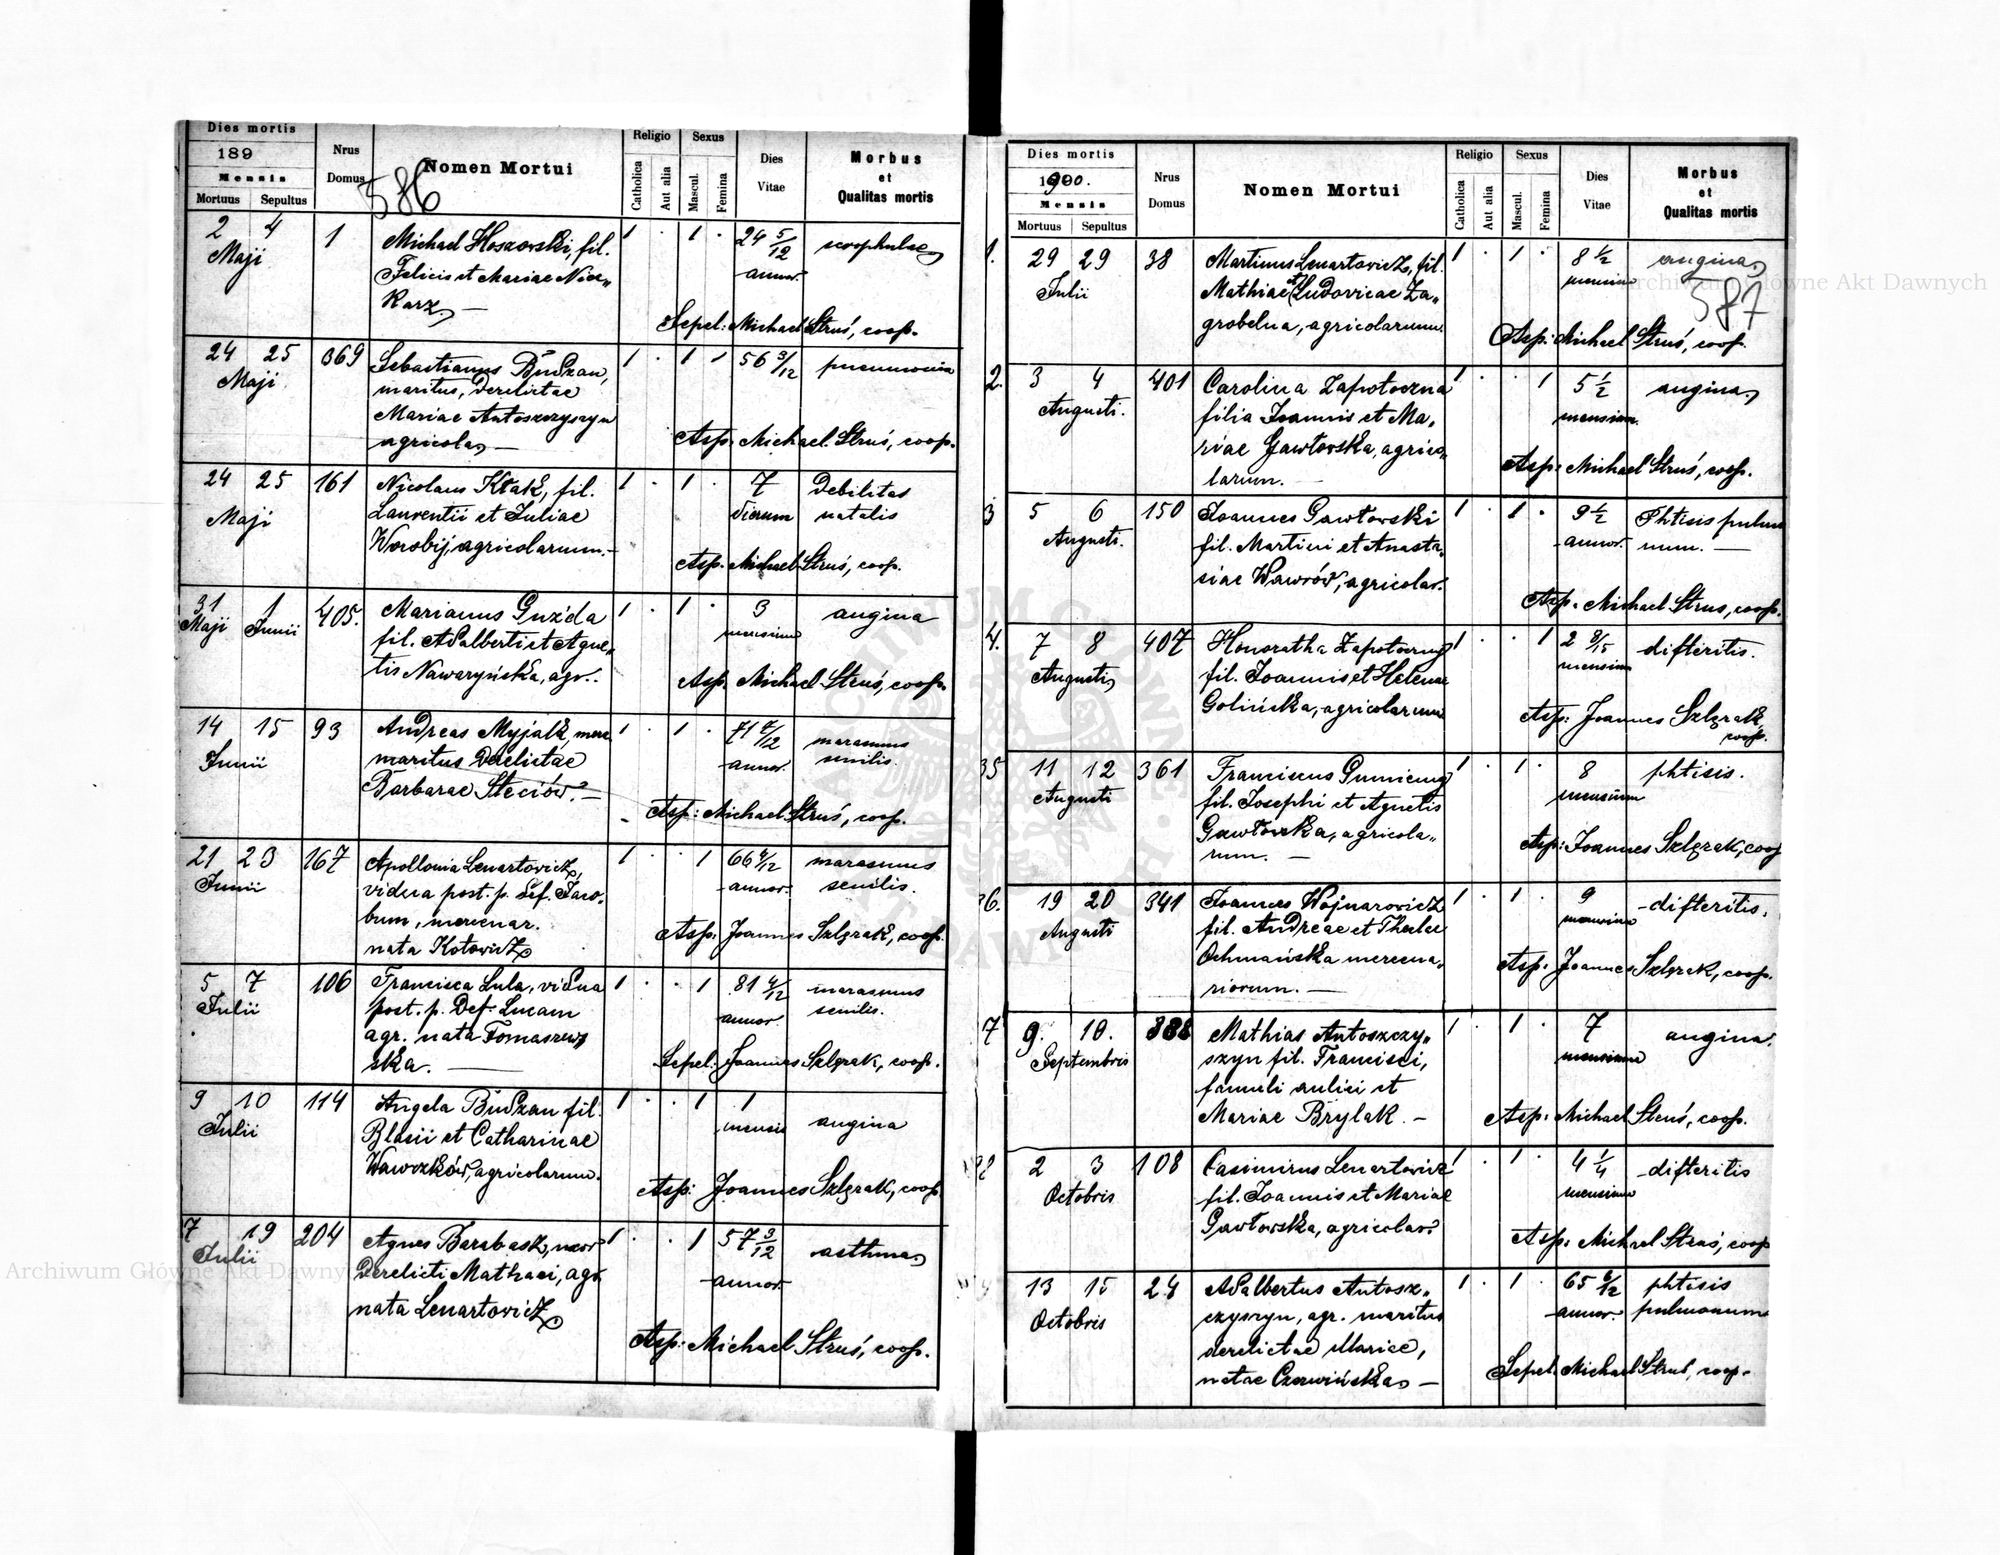 Dies mortis
189
Mensis
Mortuus Sepultus
Nrus
Domus
Nomen Mortui
586
Religio
Catholica
Aut alia
Sexus
Mascul.
Femina
Dies
Vitae
Morbus
et
Qualitas mortis
2 4 1 Michael Hoszowski, fil. 1 . 1 . 24 5/12
Maji Felicis et Mariae annor.
Sepel: Michael Struś, coop.
24 25 369 Sebastianus Budzan, 1 . 1 56 3/12 pneumonia
Maji maritus, derelictae
Mariae Antoszczyszyn
agricola, —
Asp. Michael Struś, coop.
24 25 161 Nicolaus Kłak, fil. 1 . 1 . 7 Debilitas
Maji Laurentii et Juliae dierum natalis
Worobij, agricolarum. —
Asp. Michael Struś, coop.
31 1 405. Marianus Guzda 1 . 1 . 3 angina
Maji Junii fil. Adalberti et Agne„ mensium
tis Nawaryńska, agr..
Asp. Michael Struś, coop.
14 15 93 Andreas Myjak, merc. 1 . 1 . 71 annor. marasmus
Junii maritus derelictae senilis.
Barbarae Steciów. —
Asp: Michael Struś, coop.
21 23 167 Apollonia Lenartowicz, 1 . . 1 66 annor. marasmus
Junii vidua post. p. def. Jaco„ senilis.
bum, mercenar.
nata Kotowicz
Asp. Joannes Szlęzak, coop.
5 7 106 Francisca Lula, vidua 1 . . 1 81 4/12 marasmus
Julii post. p. Def. Lucam annor. senilis.
agr. nata Tomaszew„
ska. —
Sepel: Joannes Szlęzak, coop.
9 10 114 Angela Budzan fil. 1 . . 1 1 angina
Julii Blasii et Catharinae mensis
Wawrzków, agricolarum.
Asp: Joannes Szlęzak, coop.
7 19 204 Agnes Barabasz, uxor 1 . . 1 57 3/12 asthma
Julii Derelicti Mathaei, agr. annor.
nata Lenartowicz
Asp: Michael Struś, coop.
Dies mortis
1900.
Mensis
Mortuus Sepultus
Nrus
Domus
Nomen Mortui
Religio
Catholica
Aut alia
Sexus
Mascul.
Femina
Dies
Vitae
Morbus
et
Qualitas mortis
587
1. 29 29 38 Martinus Lenartowicz, fil. 1 . 1 . 8 1/2 angina
Julii Mathiae et Ludovicae Za„ mensium
grobelna, agricolarum.
Asp: Michael Struś, coop.
2. 3 4 401 Carolina Zapotoczna 1 . . 1 5 1/2 angina
Augusti. filia Joannis et Ma„ mensium.
riae Gawłowska, agrico„
larum. —
Asp: Michael Struś, coop.
3 5 6 150 Joannes Gawłowski 1 . 1 . 9 1/2 Phtisis pulmo
Augusti. fil. Martini et Anasta„ annor. num. —
siae Wawrów, agricolar.
Asp. Michael Struś, coop.
4. 7 8 407 Honoratha Zapotoczny 1 . . 1 2 mensium difteritis.
Augusti fil. Joannis et Helenae
Golińska, agricolarum
Asp: Joannes Szlęzak,
coop.
35 11 12 361 Franciscus Gumieny 1 . 1 . 8 phtisis.
Augusti fil. Josephi et Agnetis mensium
Gawłowska, agricola„
rum. —
Asp: Joannes Szlęzak, coop
36. 19 20 341 Joannes Wojnarowicz 1 . 1 . 9 difteritis.
Augusti fil. Andreae et Theclae mensium
Ochmańska mercena„
riorum. —
Asp: Joannes Szlęzak, coop.
7 9. 10. 388 Mathias Antoszczy„ 1 . 1 . 7 angina.
Septembris szyn fil. Francisci, mensium
famuli aulici et
Mariae Brylak. —
Asp: Michael Struś, coop.
2 3 108 Casimirus Lenartowicz 1 . 1 . 4 1/4 difteritis
Octobris fil. Joannis et Mariae mensium
Gawłowska, agricolar.
Asp: Michael Struś, coop
13 15 24 Adalbertus Antosz„ 1 . 1 . 65 phtisis
Octobris czyszyn, agr. maritus annor. pulmonum
derelictae Mariae,
natae Czerwińska, —
Sepel. Michael Struś, coop.
Archiwum Główne Akt Dawnych
Archiwum Główne Akt Dawnych
ARCHIWUM GŁÓWNE AKT DAWNYCH